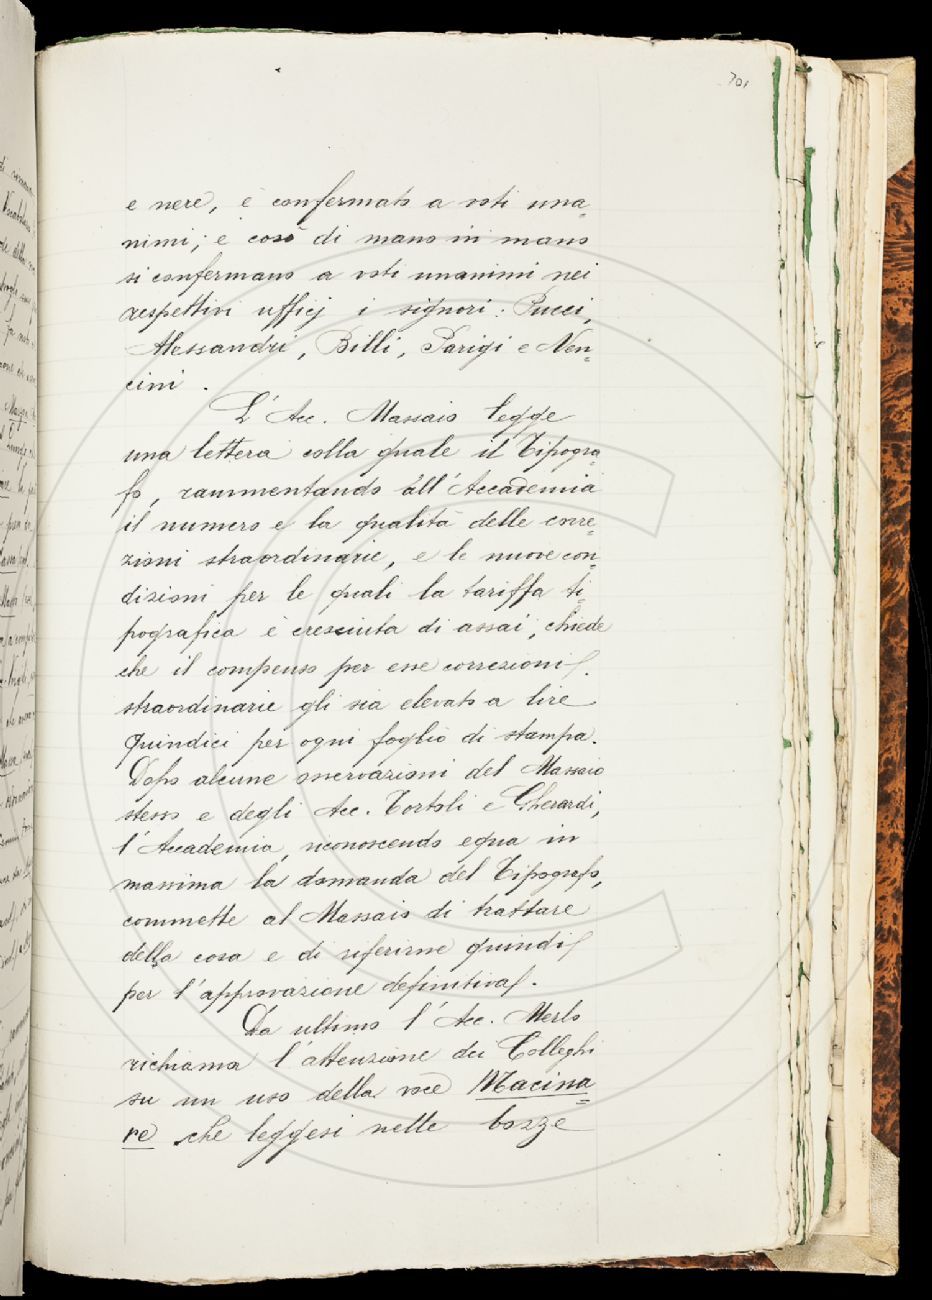 701
e nere, è confermato a voti una=
nimi; e così di mano in mano
si confermano a voti unanimi nei
respettivi ufficj i signori: Pucci,
Alessandri, Billi, Parigi e Nen=
cini.
L'Acc. Massaio legge
una lettera colla quale il Tipogra=
fo, rammentando all'Accademia
il numero e la qualità delle corre=
zioni straordinarie, e le nuove con=
dizioni per le quali la tariffa ti=
pografica è cresciuta di assai, chiede
che il compenso per esse correzioni
straordinarie gli sia elevato a lire
quindici per ogni foglio di stampa.
Dopo alcune osservazioni del Massaio
stesso e degli Acc. Tortoli e Gherardi,
l'Accademia, riconoscendo equa in
massima la domanda del Tipografo,
commette al Massaio di trattare
della cosa e di riferirne quindi
per l'approvazione definitiva.
Da ultimo l'Acc. Merlo
richiama l'attenzione dei Colleghi
su un uso della voce Macina=
re che leggesi nelle bozze